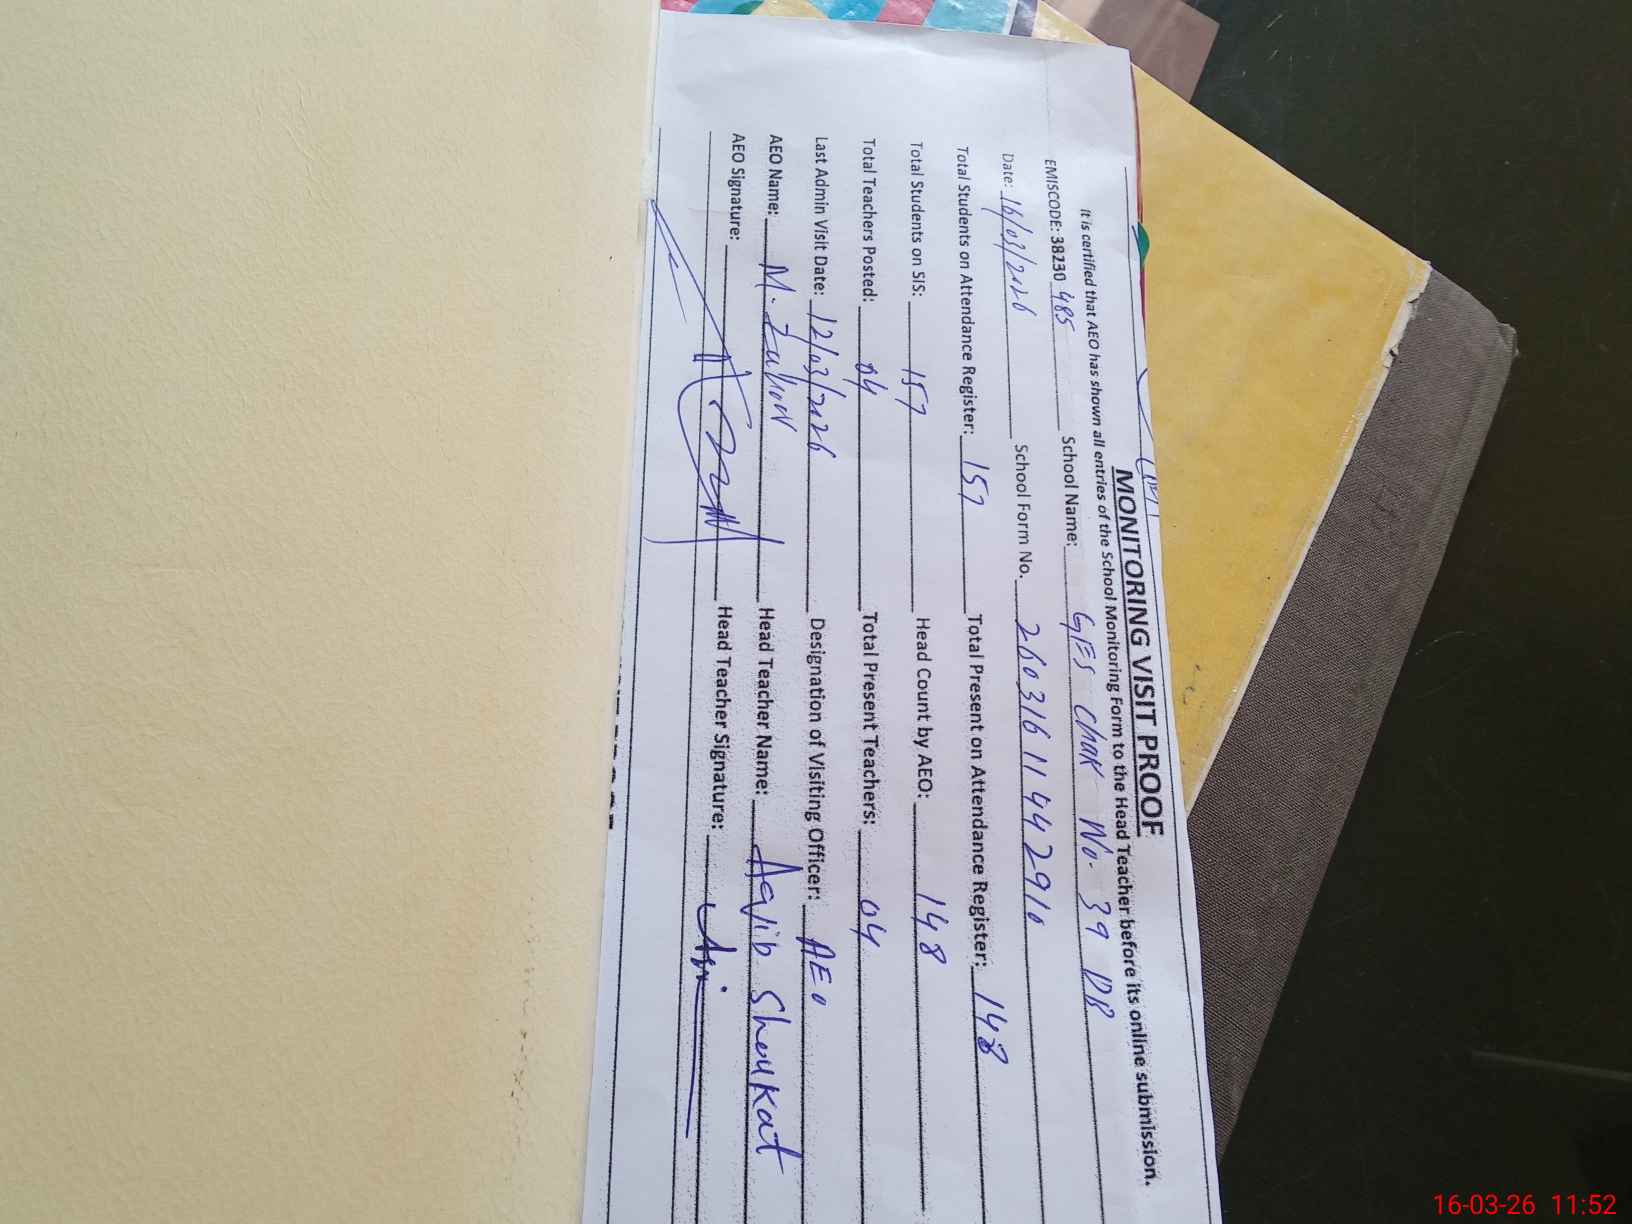 MONITORING VISIT PROOF
It is certified that AEO has shown all entries of the School Monitoring Form to the Head Teacher before its online submission.
EMISCODE: 38230 485 School Name: GES Chak No. 39 DB
Date: 16/03/2026 School Form No. 26031611442910
Total Students on Attendance Register: 157 Total Present on Attendance Register: 148
Total Students on SIS: 157 Head Count by AEO: 148
Total Teachers Posted: 04 Total Present Teachers: 04
Last Admin Visit Date: 12/03/2026 Designation of Visiting Officer: AEO
AEO Name: M. Head Teacher Name: Aqib Shoukat
AEO Signature: Head Teacher Signature:
16-03-26 11:52